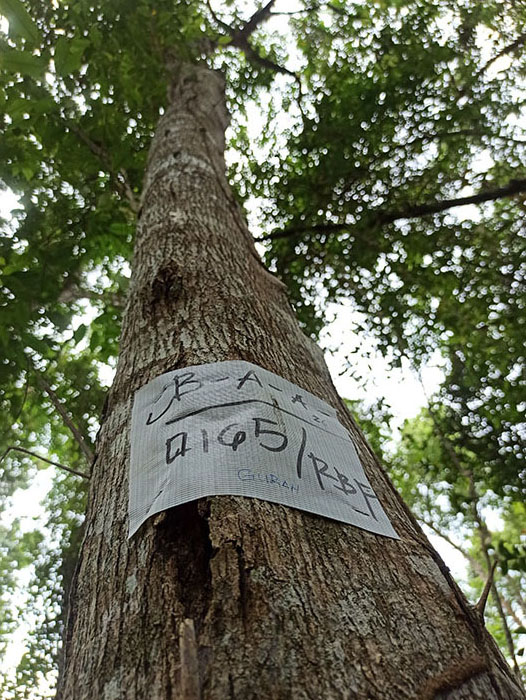 B-A-A
0165/RBF
GURAN